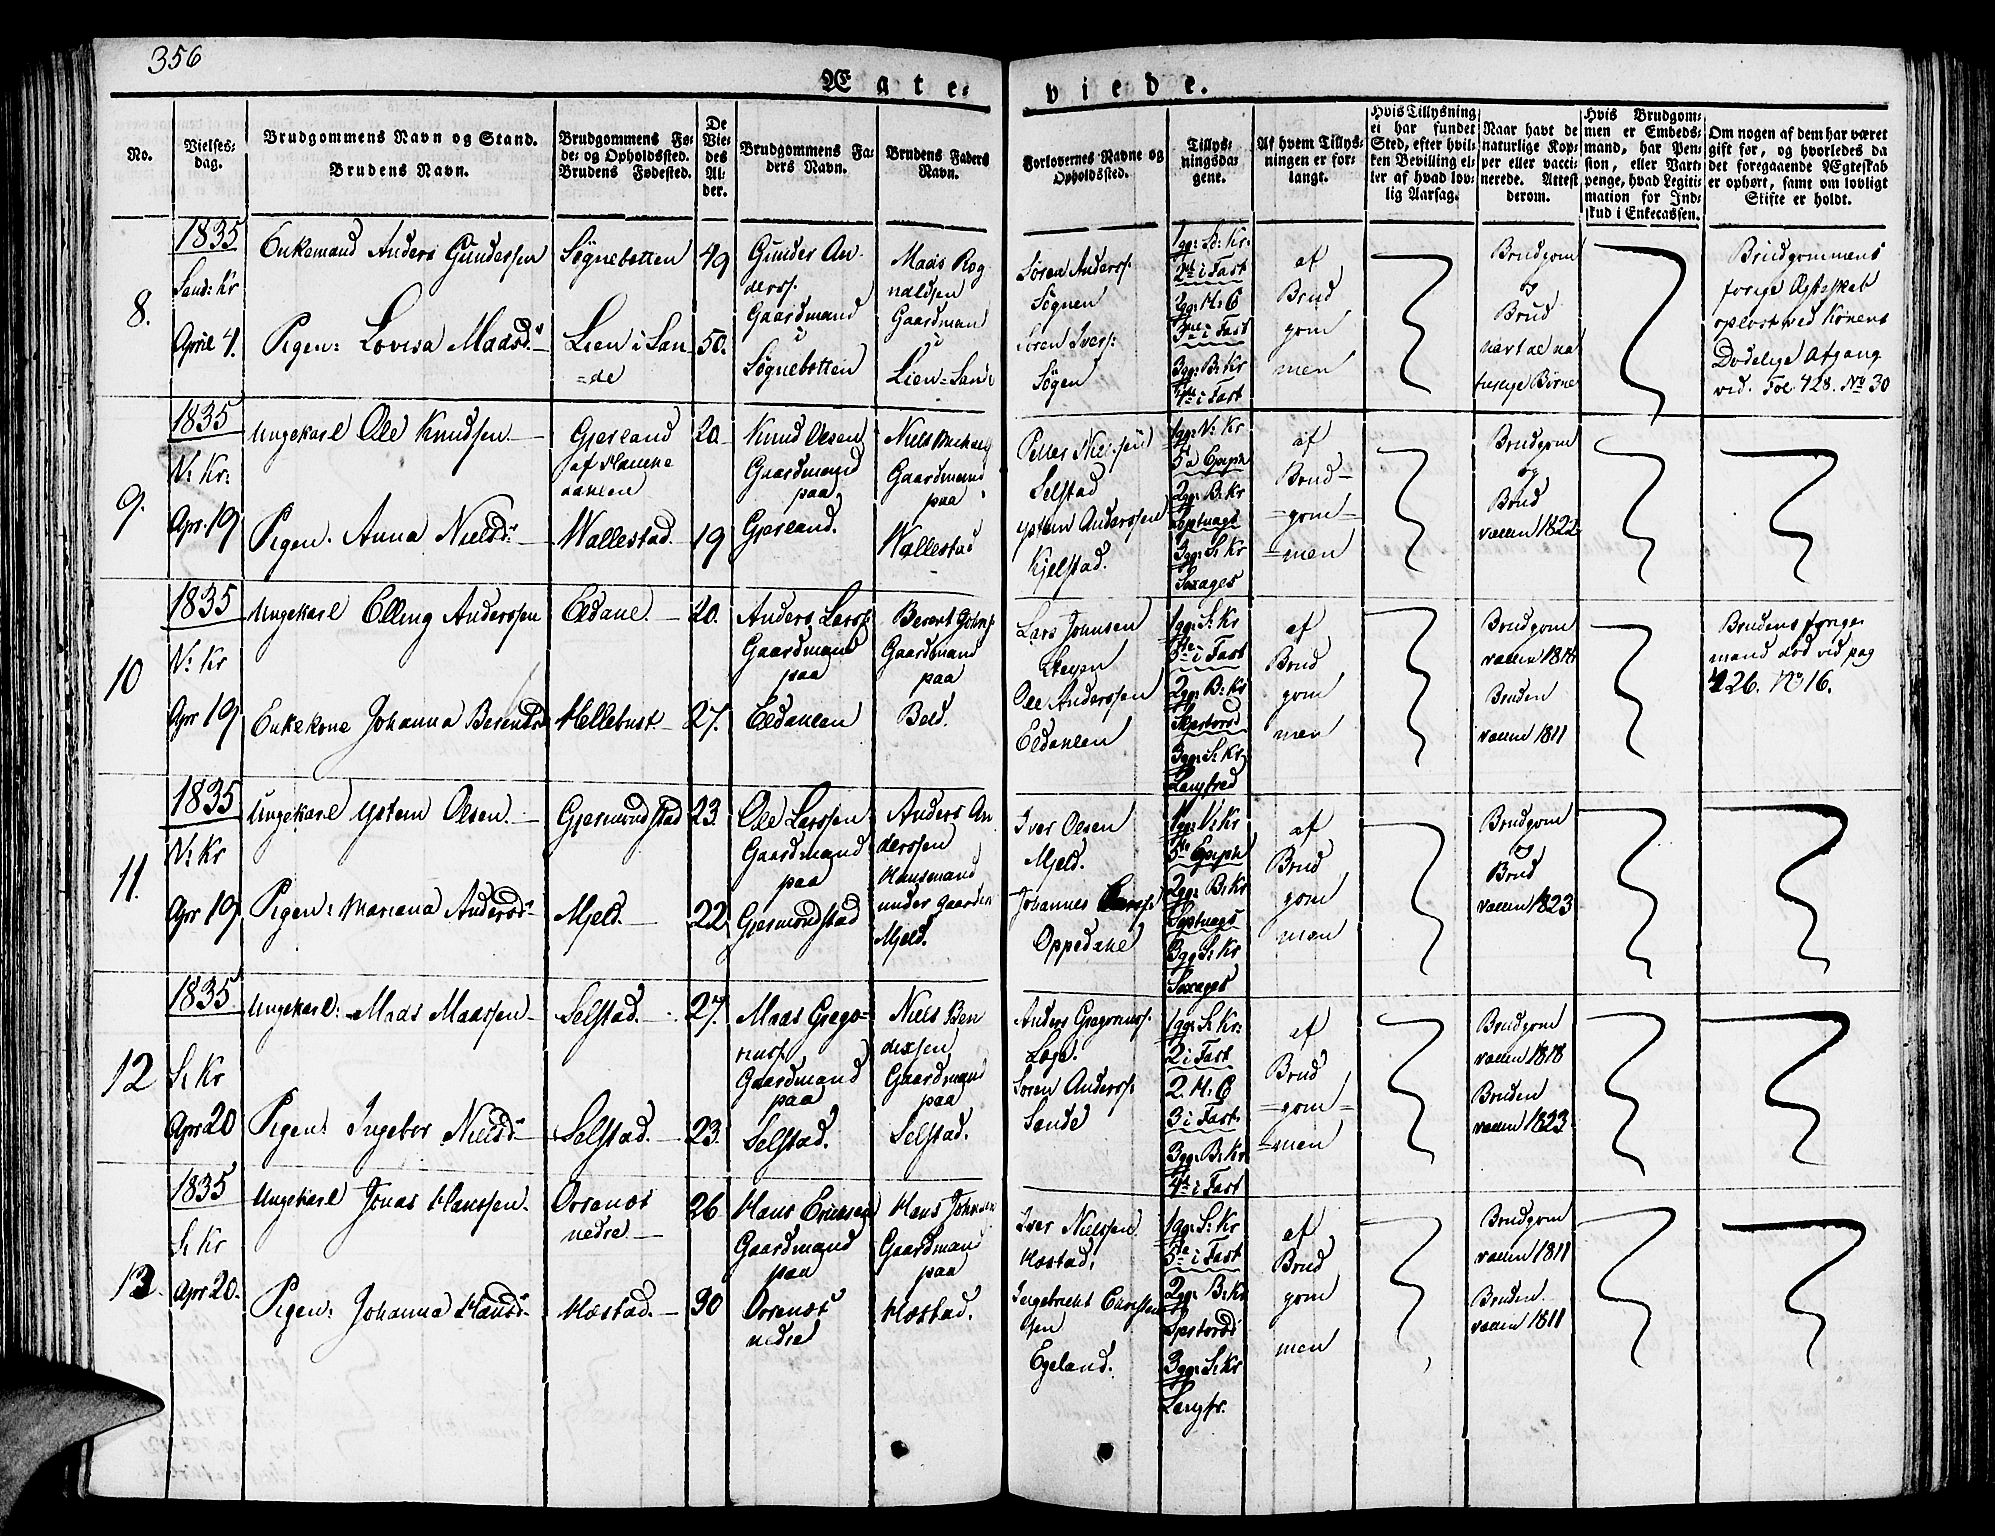 356
Ægte-
viede.
No.
Vielses-
dag.
Brudgommens Navn og Stand.
Brudens Navn.
Brudgommens Fø-
de- og Opholdssted.
Brudens Fødested.
De
Vie-
des
Al-
der.
Brudgommens Fa-
ders Navn.
Brudens Faders
Navn.
Forlovernes Navne og
Opholdssted.
Tillys-
ningsda-
gene.
Af hvem Tillys-
ningen er for-
langt.
Hvis Tillysning
ei har fundet
Sted, efter hvil-
ken Bevilling el-
ler af hvad lov-
lig Aarsag.
Naar havt de
naturlige Kop-
per eller vacci-
nerede. Attest
derom.
Hvis Brudgom-
men er Embeds-
mand, har Pen-
sion, eller Vart-
penge, hvad Legiti-
mation for Ind-
skud i Enkecassen.
Om nogen af dem har været
gift før, og hvorledes da
det foregaaende Ægteskab
er ophørt, samt om lovligt
Stifte er holdt.
8.
1835
Sand: Kr
April 4.
Enkemand Anders Gundersen
Pigen: Lovisa Maasd.
Søgnebotten
Lien i San
=de
49
50.
Gunder An-
derss.
Gaardmand
i
Søgnebotten
Maas Rog
naldsen
Gaardman
i
Lien = Sande
Søren Anderss.
Søgnen
Søren Ivers:
Søgen
1gg: Sd: Kr.
2d i Fast
2gg: H: G
3die i Fast
3gg: B: Kr
4de i Fast
af
Brud
gom
men
Brudgom
og
Brud
havt de na
turlige Børne
Brudgommens
forige Ægteskab
opløst ved Konens
Dødelige Afgang
vid. Fol. 428. No 30
9.
1835
V: Kr:
Apr. 19
Ungekarl Ole Knudsen
Pigen. Anna Nielsd.
Gjerland
af Hauke
dahlen
Wallestad
20
19
Knud Olsen
Gaardmand
paa
Gjerland.
Niels
Gaardmand
paa
Wallestad
Peder Nielsen
Selstad
Ystein Anderssen
Kjelstad.
1gg: V: Kr
5 a Epiph
2gg: B: Kr
Septuags
3gg: S: Kr
Sexages
af
Brud-
=gom=
=men
Brudgom
og
Brud
vaccn 1822
10
1835
V: Kr
Apr 19
Ungekarl Elling Anderssen
Enkekone Johanna Berentsd
Eldane.
Hellebust
20.
27.
Anders Larss.
Gaardmand
paa
Eldahlen
Berent Johns.
Gaardmand
paa
Beld.
Lars Johnsen
Steyen
Ole Anderssen
Eldahlen
1gg: S: Kr
5te i Fast
2gg: B: Kr
Skertorsd
3gg: S: Kr:
Langfred
af
Brud
gom
men
Brudgom
vaccn 1818
Bruden
vaccn 1811
Brudens forige
mand død vid pag
426. No 16.
11.
1835
V: Kr
Apr 19
Ungekarl Ystein Olsen.
Pigen: Mariana Andersd.
Gjermundstad
Mjeld.
23
22
Ole Larssen
Gaardmand
paa
Gjermondstad
Anders An
derssen
Husmand
under Gaarden
Mjeld.
Iver Olsen
Mjeld.
Johannes Larss.
Oppedahl
1gg: V: Kr
5te Epiph
2gg: B: Kr
Septuags
3gg S: Kr
Sexages
af
Brud
gom
men
Brudgom
og
Brud
vaccn 1823
12
1835
S: Kr
Apr 20
Ungekarl: Maas Maassen
Pigen: Ingebor Nielsd
Selstad.
Selstad.
27.
23
Maas Grego=
riuss.
Gaardmand
paa
Selstad.
Niels Ben
dixsen
Gaardmand
paa
Selstad.
Anders Gregoriuss.
Loge.
Søren Anderss.
Sande
1gg: S: Kr:
2 i Fast
2. H: G
3 i Fast
3gg: B: Kr
4de i Fast
af
Brud
=gom=
=men
Brudgom
vaccn 1818
Bruden
vaccn 1823
13.
1835
S: Kr
Apr 20.
Ungekarl Jonas Hanssen.
Pigen: Johanna Hansd.
Orsenøs
nedre
Hæstad.
26
30
Hans Ericksen
Gaardmand
paa
Orsenøs
nedre
Hans Johnsen
Gaardmand
paa
Hæstad.
Iver Nielssen
Hæstad.
Ingebricht Christen
sen
Egeland.
1gg: S: Kr
5te i Fast
2gg: B: Kr
3gg: S: Kr
Langfr.
af
Brud
gom
men
Brudgom
vaccn 1811
Bruden.
vaccn 1811